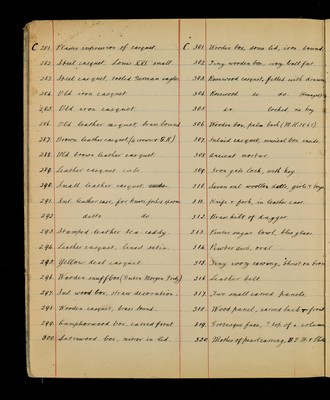 C 281. Plaster impression of casquet.
282. Steel casquet, Louis XVI small.
283. Steel casquet, German eagles
284. Old iron casquet
285. Old iron casquet.
286. Old leather casquet, brass bound
287. Brown leather casquet
288. Old brown leather casquet.
289. Leather casquet,
290. Small leather casquet,
291. Ink leather case, for knives, forks, spoons
292. ditto do
293. Stamped leather tea caddy.
294. Leather casquet, lined satin.
295. Yellow deal casquet
296. Wooden snuffbox
297. Ink wood box, straw decoration.
298. Wooden casquet, brass bound.
299. Camphorwood box, carved front
300. Satinwood box, mirror in lid.
C 301. Wooden box, dome lid, iron bound
302. Tiny wooden box, ivory ball feet
303. Rosewood casquet, fitted with drawers
304. Rosewood do do
305. do locked, no key
306. Wooden box, palm bark
307. Inlaid casquet, musical box inside.
308. Ancient mortar.
309. Iron gab lock, with key.
310. Seven old wooden dolls, girls & boys
311. Knife & fork, in leather case.
312. Brass hilt of dagger
313. Pewter sugar bowl, blue glass
314. Pewter dish, oval
315. Ivory carving, Christ on
316. Leather belt
317. Two small carved panels.
318. Wood panel, carved back & front
319. Grotesque face, ? top of a column
320. Mother of pearl carving,